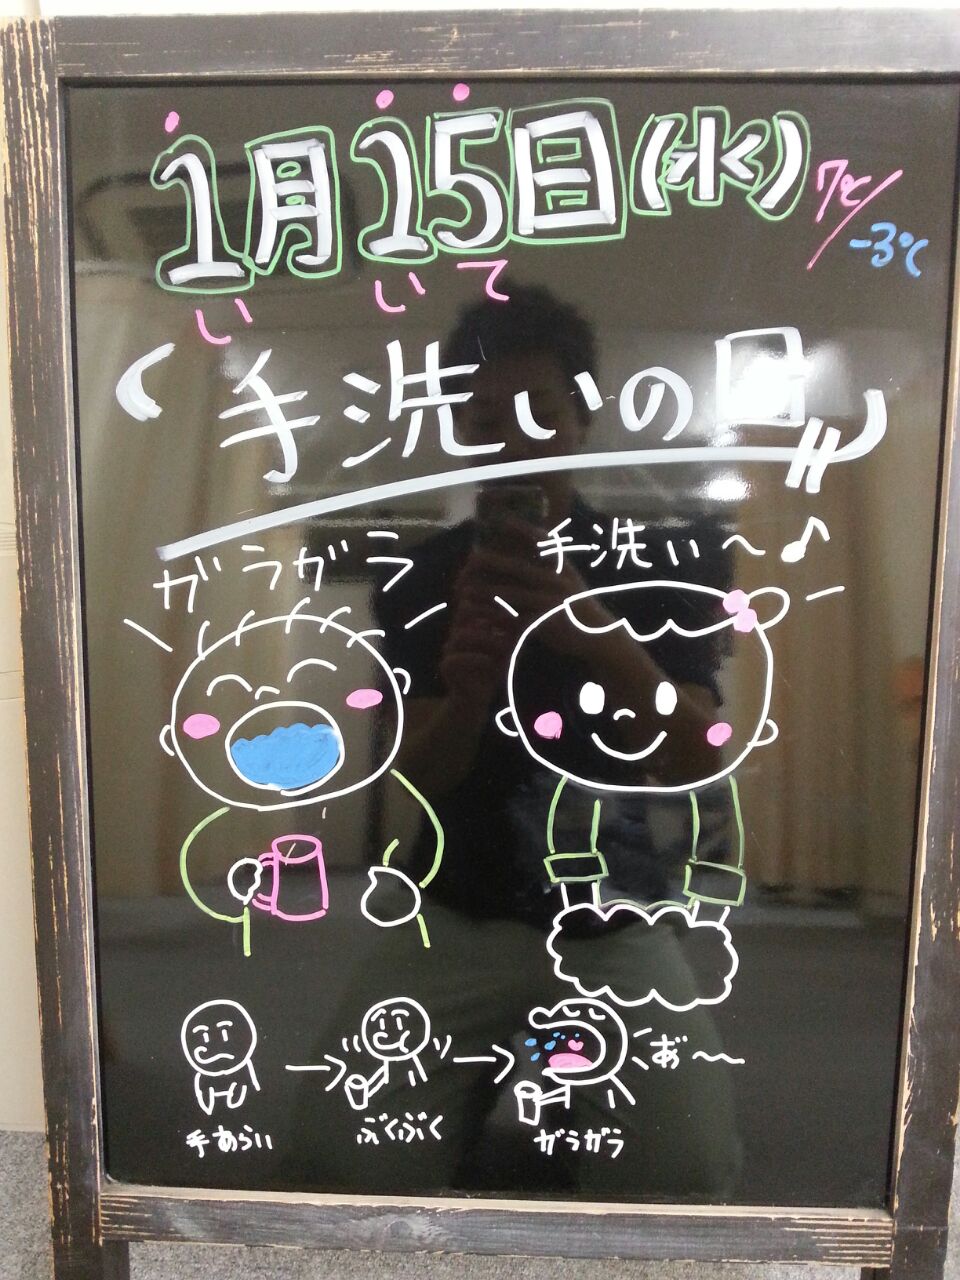 1月15日(水) 7℃/-3℃
いいて
手洗いの日
ガラガラ
手洗い〜♪
あ゛〜〜
手あらい
ぶくぶく
ガラガラ